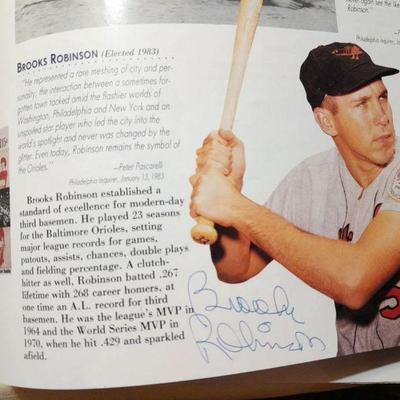 never again see the like
Robinson."
Philadelphia Inquirer,
BROOKS ROBINSON (Elected 1983)
"He represented a rare meshing of city and per-
sonality, the interaction between a sometimes for-
gotten town tucked amid the flashier worlds of
Washington, Philadelphia and New York and an
unspoiled star player who led the city into the
world's spotlight and never was changed by the
glitter. Even today, Robinson remains the symbol of
the Orioles."
—Peter Pascarelli
Philadelphia Inquirer, January 13, 1983
Brooks Robinson established a
standard of excellence for modern-day
third basemen. He played 23 seasons
for the Baltimore Orioles, setting
major league records for games,
putouts, assists, chances, double plays
and fielding percentage. A clutch-
hitter as well, Robinson batted .267
lifetime with 268 career homers, at
one time an A.L. record for third
basemen. He was the league's MVP in
1964 and the World Series MVP in
1970, when he hit .429 and sparkled
afield.
Brooks
Robinson